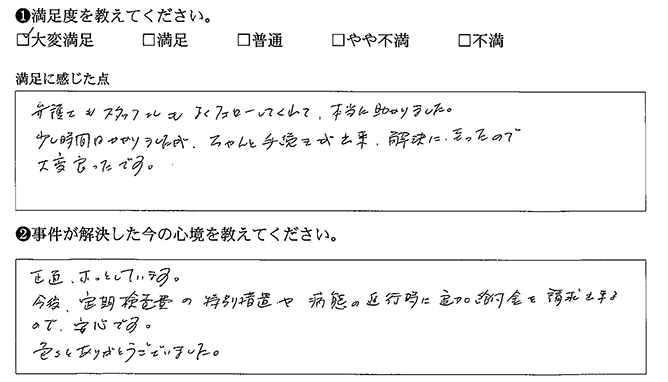 ❶満足度を教えてください。
☑大変満足 □満足 □普通 □やや不満 □不満
満足に感じた点
弁護士もスタッフもよくフォローしてくれて、本当に助かりました。
少し時間はかかりましたが、ちゃんと手続きが出来、解決に至ったので
大変良ったです。
❷事件が解決した今の心境を教えてください。
正直、ホッとしています。
今後、定期検査費の特別措置や病態の進行時に追加給付金を請求出来る
ので、安心です。
色々とありがとうございました。